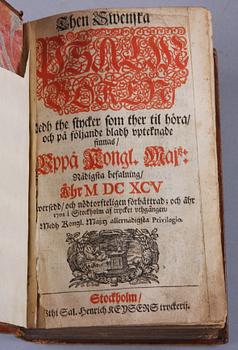 Then Swenska
PSALM
BOKEN
Medh the stycker som ther til höra/
och på följande bladh vptecknade
finnas/
Vppå Kongl. Maj:tz
Nådigsta befalning/
Åhr M DC XCV
Öfwersedd/ och nödtorfteligen förbättrad; och åhr
i Stockholm af trycket vthgången/
Medh Kongl. Maj:tz allernådigsta Privilegio.
Stockholm/
Vthi Sal. Henrich KEYSERS tryckeri.